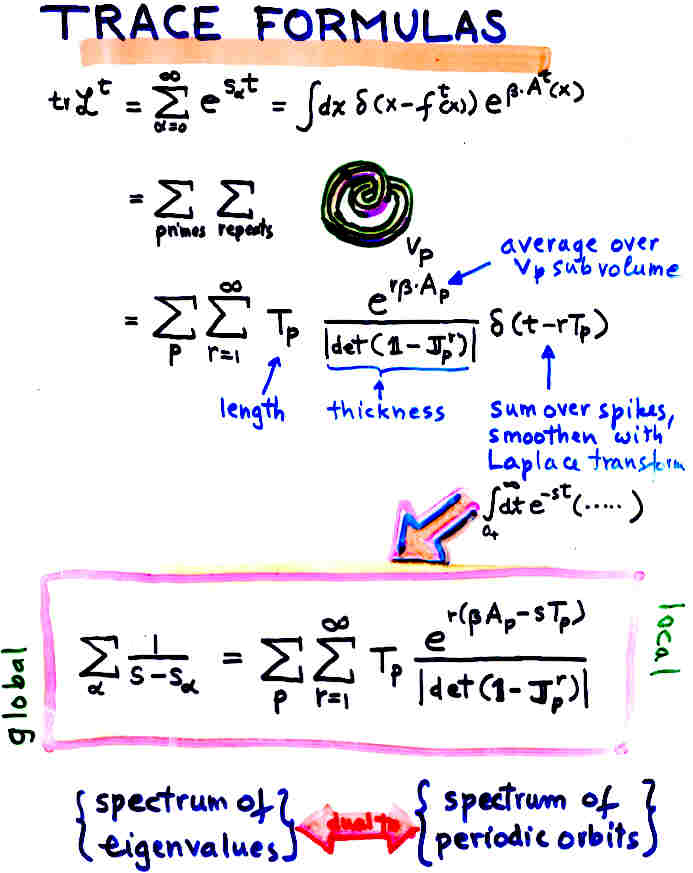 TRACE FORMULAS
tr ℒ^t = ∑_{α=0}^{∞} e^{s_α t} = ∫dx δ(x-f^t(x)) e^{β·A^t(x)}
= ∑_{primes} ∑_{repeats}
V_p
average over
V_p subvolume
= ∑_p ∑_{r=1}^{∞} T_p e^{rβ·A_p} / |det(1-J_p^r)| δ(t-rT_p)
length
thickness
sum over spikes,
smoothen with
Laplace transform
∫_{0+}^{∞} dt e^{-st} (.....)
global
∑_α 1/(s-s_α) = ∑_p ∑_{r=1}^{∞} T_p e^{r(βA_p-sT_p)} / |det(1-J_p^r)|
local
{spectrum of eigenvalues}
dual to
{spectrum of periodic orbits}